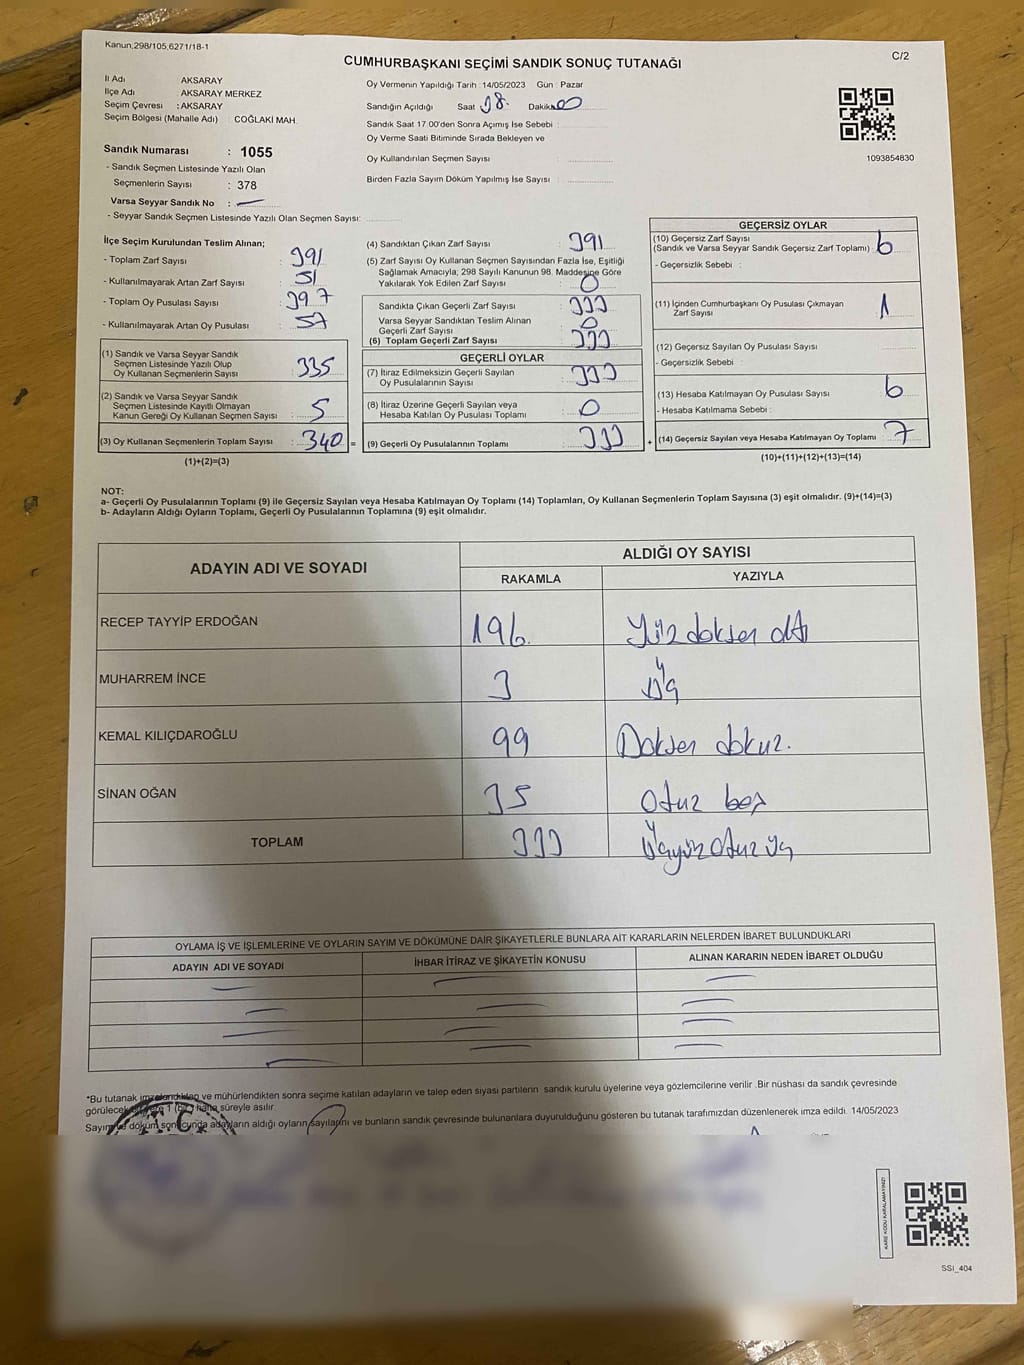 Kanun,298/105,6271/18-1
C/2
CUMHURBAŞKANI SEÇİMİ SANDIK SONUÇ TUTANAĞI
İl Adı AKSARAY
İlçe Adı AKSARAY MERKEZ
Seçim Çevresi : AKSARAY
Seçim Bölgesi (Mahalle Adı) : COĞLAKİ MAH.
Oy Vermenin Yapıldığı Tarih : 14/05/2023 Gün : Pazar
Sandığın Açıldığı Saat 18. Dakika 00
Sandık Saat 17.00'den Sonra Açımış İse Sebebi :
Oy Verme Saati Bitiminde Sırada Bekleyen ve
Oy Kullandırılan Seçmen Sayısı :
Birden Fazla Sayım Döküm Yapılmış İse Sayısı :
1093854830
Sandık Numarası : 1055
- Sandık Seçmen Listesinde Yazılı Olan
Seçmenlerin Sayısı : 378
Varsa Seyyar Sandık No : —
- Seyyar Sandık Listesinde Yazılı Olan Seçmen Sayısı:
İlçe Seçim Kurulundan Teslim Alınan;
- Toplam Zarf Sayısı : 391
- Kullanılmayarak Artan Zarf Sayısı : 51
- Toplam Oy Pusulası Sayısı : 397
- Kullanılmayarak Artan Oy Pusulası : 57
(1) Sandık ve Varsa Seyyar Sandık
Seçmen Listesinde Yazılı Olup
Oy Kullanan Seçmenlerin Sayısı : 335
(2) Sandık ve Varsa Seyyar Sandık
Seçmen Listesinde Kayıtlı Olmayan
Kanun Gereği Oy Kullanan Seçmen Sayısı : 5
(3) Oy Kullanan Seçmenlerin Toplam Sayısı : 340 =
(1)+(2)=(3)
(4) Sandıktan Çıkan Zarf Sayısı : 391
(5) Zarf Sayısı Oy Kullanan Seçmen Sayısından Fazla İse, Eşitliği
Sağlamak Amacıyla; 298 Sayılı Kanunun 98. Maddesine Göre
Yakılarak Yok Edilen Zarf Sayısı : 0
Sandıkta Çıkan Geçerli Zarf Sayısı : 333
Varsa Seyyar Sandıktan Teslim Alınan
Geçerli Zarf Sayısı : 0
(6) Toplam Geçerli Zarf Sayısı : 333
GEÇERLİ OYLAR
(7) İtiraz Edilmeksizin Geçerli Sayılan
Oy Pusulalarının Sayısı : 333
(8) İtiraz Üzerine Geçerli Sayılan veya
Hesaba Katılan Oy Pusulası Toplamı : 0
(9) Geçerli Oy Pusulalarının Toplamı : 333 +
GEÇERSİZ OYLAR
(10) Geçersiz Zarf Sayısı
(Sandık ve Varsa Seyyar Sandık Geçersiz Zarf Toplamı) : 6
- Geçersizlik Sebebi :
(11) İçinden Cumhurbaşkanı Oy Pusulası Çıkmayan
Zarf Sayısı 1
(12) Geçersiz Sayılan Oy Pusulası Sayısı
- Geçersizlik Sebebi :
(13) Hesaba Katılmayan Oy Pusulası Sayısı 6
- Hesaba Katılmama Sebebi :
(14) Geçersiz Sayılan veya Hesaba Katılmayan Oy Toplamı : 7
(10)+(11)+(12)+(13)=(14)
NOT:
a- Geçerli Oy Pusulalarının Toplamı (9) ile Geçersiz Sayılan veya Hesaba Katılmayan Oy Toplamı (14) Toplamları, Oy Kullanan Seçmenlerin Toplam Sayısına (3) eşit olmalıdır. (9)+(14)=(3)
b- Adayların Aldığı Oyların Toplamı, Geçerli Oy Pusulalarının Toplamına (9) eşit olmalıdır.
ADAYIN ADI VE SOYADI
ALDIĞI OY SAYISI
RAKAMLA YAZIYLA
RECEP TAYYİP ERDOĞAN 196. Yüz doksen altı
MUHARREM İNCE 3 Üç
KEMAL KILIÇDAROĞLU 99 Doksen dokuz.
SİNAN OĞAN 35 Otuz beş
TOPLAM 333 Üçyüz otuz üç
OYLAMA İŞ VE İŞLEMLERİNE VE OYLARIN SAYIM VE DÖKÜMÜNE DAİR ŞİKAYETLERLE BUNLARA AİT KARARLARIN NELERDEN İBARET BULUNDUKLARI
ADAYIN ADI VE SOYADI İHBAR İTİRAZ VE ŞİKAYETİN KONUSU ALINAN KARARIN NEDEN İBARET OLDUĞU
*Bu tutanak imzalandıktan ve mühürlendikten sonra seçime katılan adayların ve talep eden siyasi partilerin sandık kurulu üyelerine veya gözlemcilerine verilir .Bir nüshası da sandık çevresinde
görülecek bir yere 1 (bir) hafta süreyle asılır.
Sayım ve döküm sonucunda adayların aldığı oyların sayılarını ve bunların sandık çevresinde bulunanlara duyurulduğunu gösteren bu tutanak tarafımızdan düzenlenerek imza edildi. 14/05/2023
T.C.
KARE KODU KARALAMAYINIZ!
SSI_404